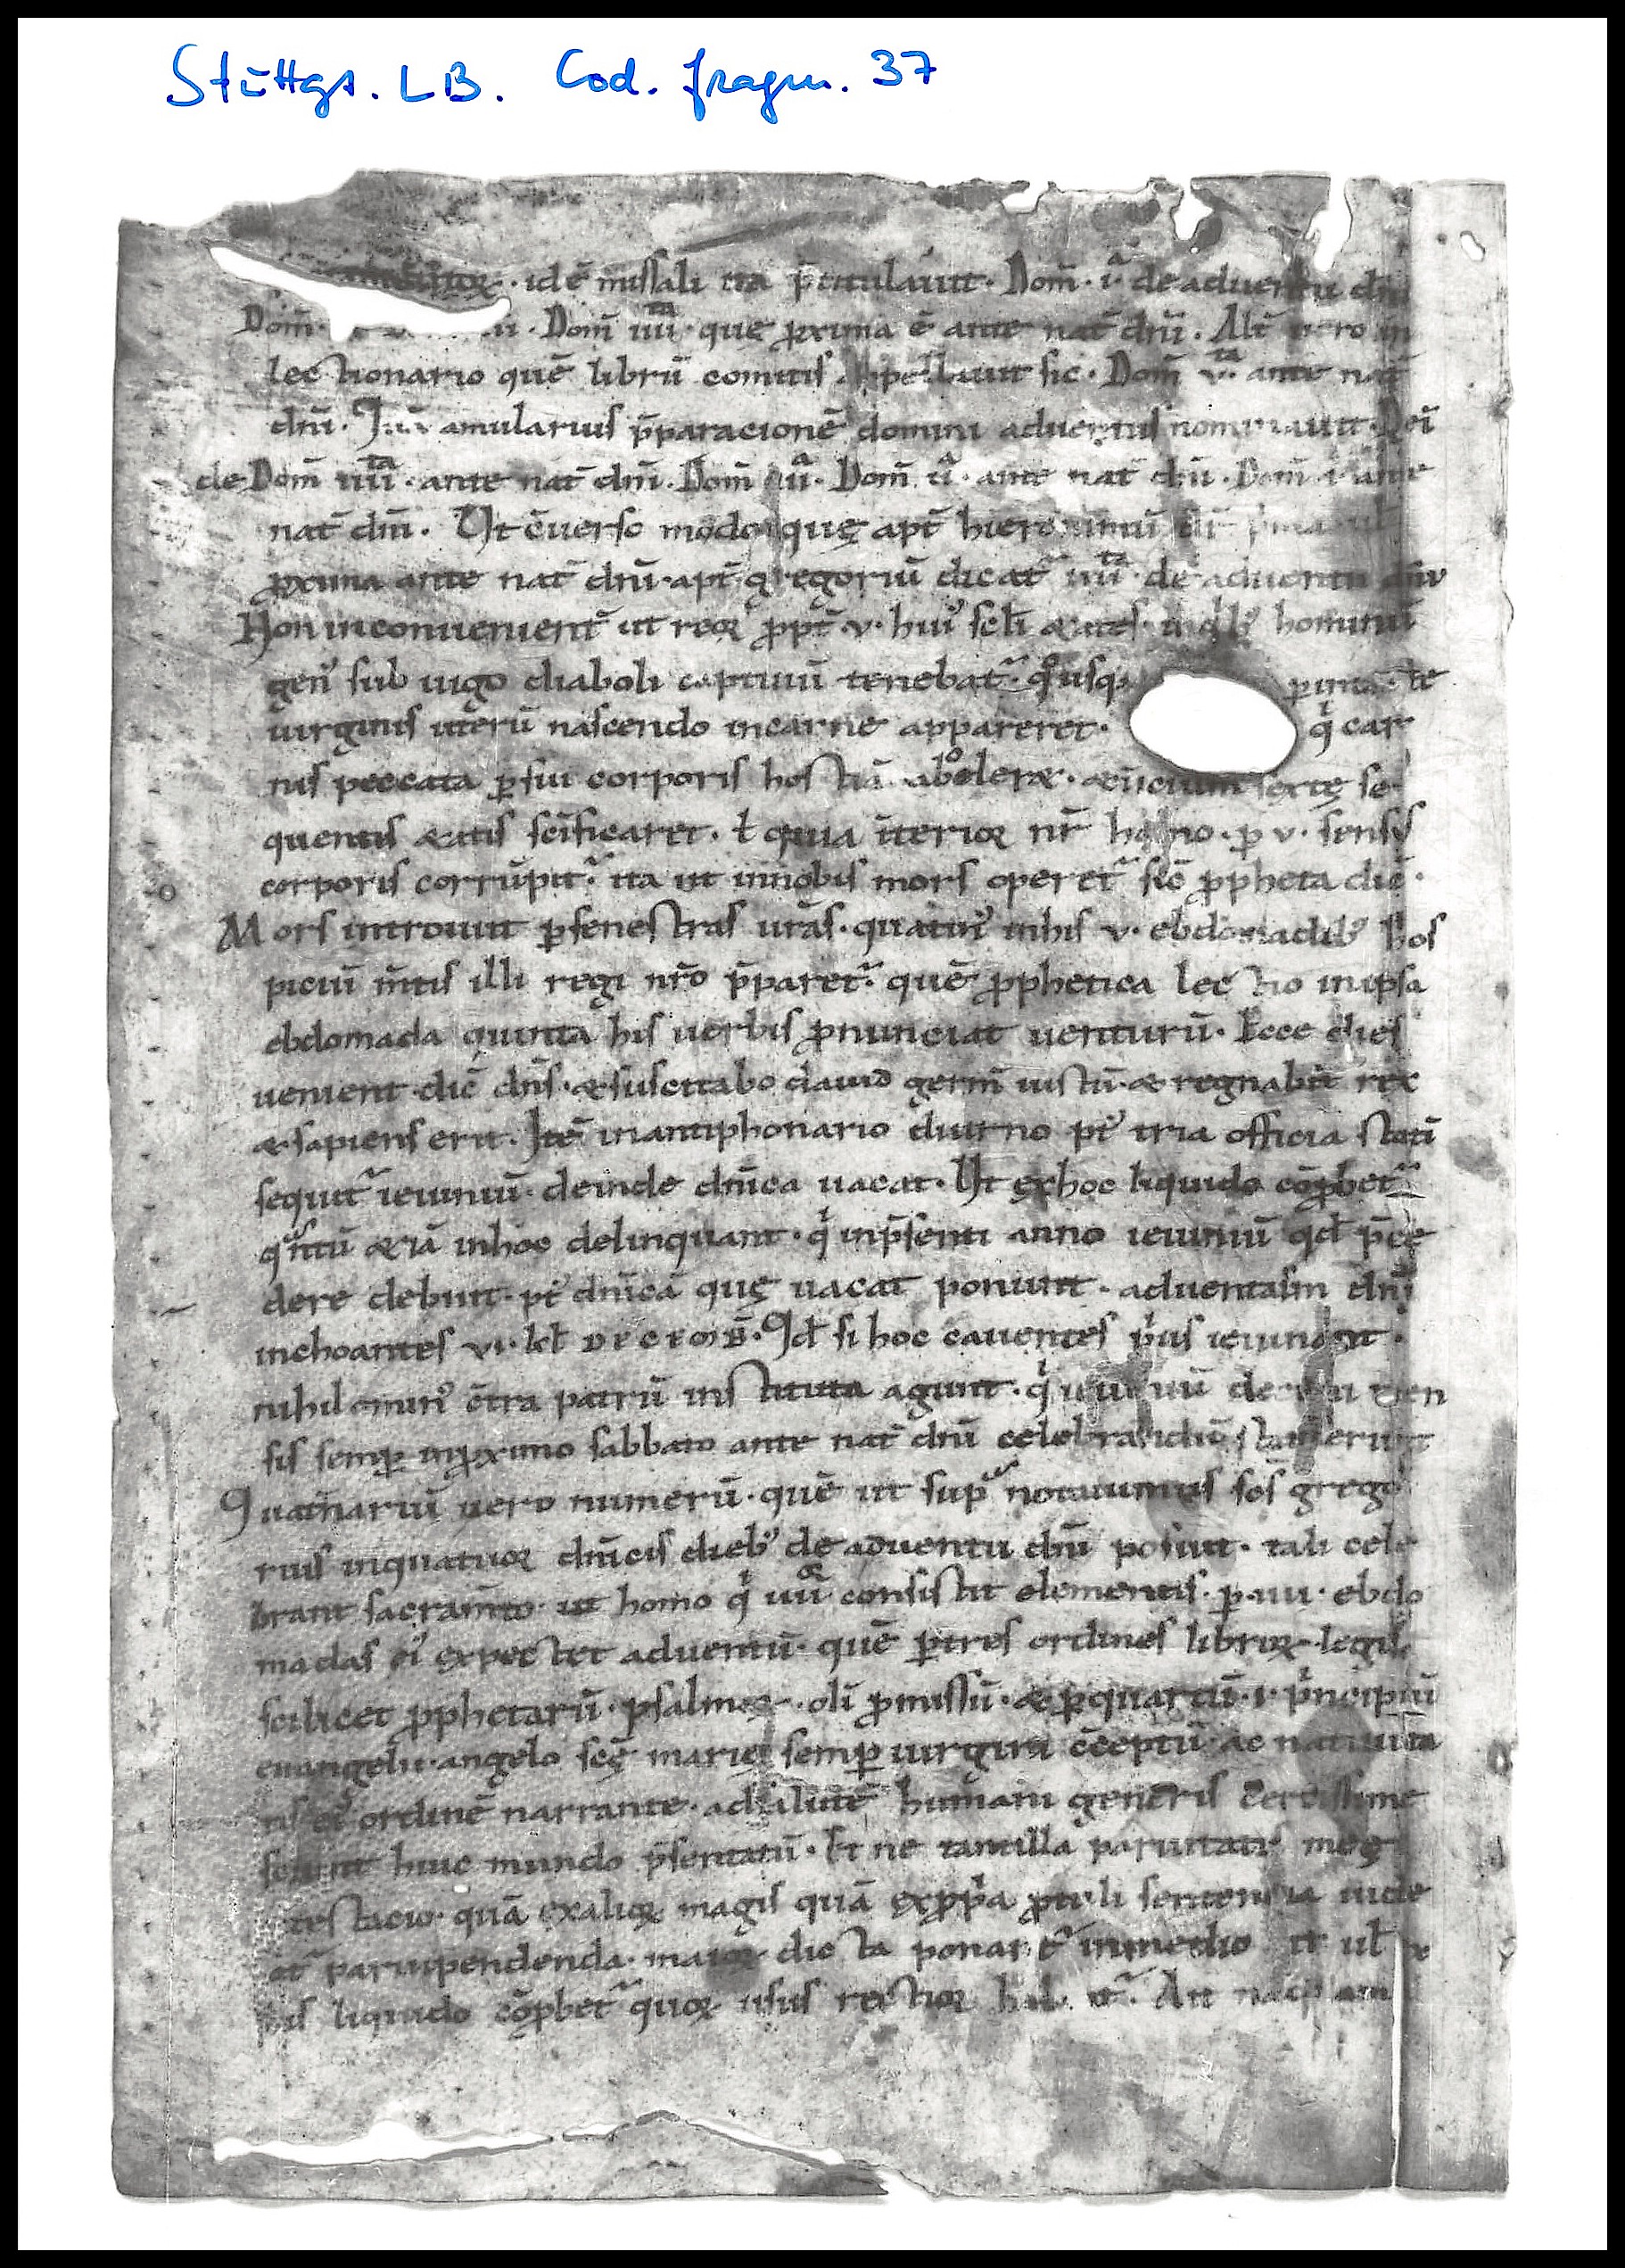 Stuttgt. LB. Cod. fragm. 37
idē missali ita p̄titulauit. Dom̄. i.ᵃ de aduentu dn̄i
Dom̄. Dom̄ iiii.ᵗᵃ quę ꝓxima ē ante nat̄ dn̄i. Alt̄ uero in
lectionario quē librū comitis sic. Dom̄ v.ᵗᵃ ante nat̄
dn̄i. amularius p̄paracionē domini aduentus
de Dom̄ iiii.ᵗᵃ ante nat̄ dn̄i. Dom̄ Dom̄ ii.ᵃ ante nat̄ dn̄i. Dom̄ i.ᵃ ante
nat̄ dn̄i. Ut c̄uerso modo quę apt̄ hieronimū
ꝓxima ante nat̄ dn̄i. apt̄ gregoriū dicat᷑ iiii.ᵗᵃ de aduentu dn̄i
Non inconuenient̄ ut reor ꝓpt̄ .v. huiꝰ scl̄i ętates. in qͥbꝰ hominū
genꝰ sub iugo diaboli captiuū tenebat᷑. qͦusqꝫ
uirginis uterū nascendo in carne appareret. qͥ car
nis peccata ꝑ sui corporis hostiā aboleret. sextę se
quentis ętatis sc̄ificaret. ł quia īterior nr̄ homo. ꝑ v. sensꝰ
corporis corrūpit᷑. ita ut in nobis mors operet᷑ sic̄ ꝓpheta dic̄.
Mors introiuit ꝑ fenestras ur̄as. quatinꝰ in his v. ebdomadibꝰ hos
piciū m̄tis illi regi nr̄o p̄paret᷑. quē ꝓphetica lectio in ipsa
ebdomada quinta his uerbis ꝓnunciat uenturū. Ecce dies
uenient dic̄ dn̄s. & suscitabo dauid germ̄ iustū. & regnabit rex
& sapiens erit. Itē in antiphonario diurno pt̕ tria officia statī
sequit᷑ ieiuniū. deinde dn̄ica uacat. Ut ex hoc liquido cōꝓbet᷑
qͣntū &iā in hoc delinquant. qͥ in p̄senti anno ieiuniū qd̄ p̄ce
dere debuit. pt̕ dn̄icā quę uacat ponunt. aduentaīm dn̄i
inchoantes vi. kl̄ DECEMB̄. Qd̄ si hoc cauentes pͥus ieiunant.
nihilominꝰ c̄tra patrū instituta agunt. qͥ
sis semꝑ in ꝓximo sabbato ante nat̄ dn̄i celebrandū statuerunt
Quat̄nariū uero numerū. quē ut supͣ notauimus sc̄s grego
rius in quatuor dn̄icis diebꝰ de aduentu dn̄i posuit. tali cele
brant sacram̄to. ut homo qͥ iiii.ᵒʳ consistit elementis. ꝑ .iiii. ebdo
madas eiꝰ expectet aduentū. quē ꝑ tres ordines libroꝝ. legis
scilicet ꝓphetarū. psalmoꝝ. olī ꝓmissū. & ꝑ quartū .i. pͥncipiū
euangelii. angelo sc̄ę marię semꝑ uirgini c̄ceptū. ac natiuita
tis eiꝰ ordinē narrante. ad salutē humani generis certissime
sciunt huic mundo p̄sentatū. Et ne tantilla paruitatis meę
testacio. quā ex alioꝝ magis quā ex ꝓpͥa ꝓtuli sentencia uide
at᷑ paruipendenda. maioꝝ dicta ponant᷑ in medio
his liquido cōꝓbet᷑ quoꝝ usus rectior